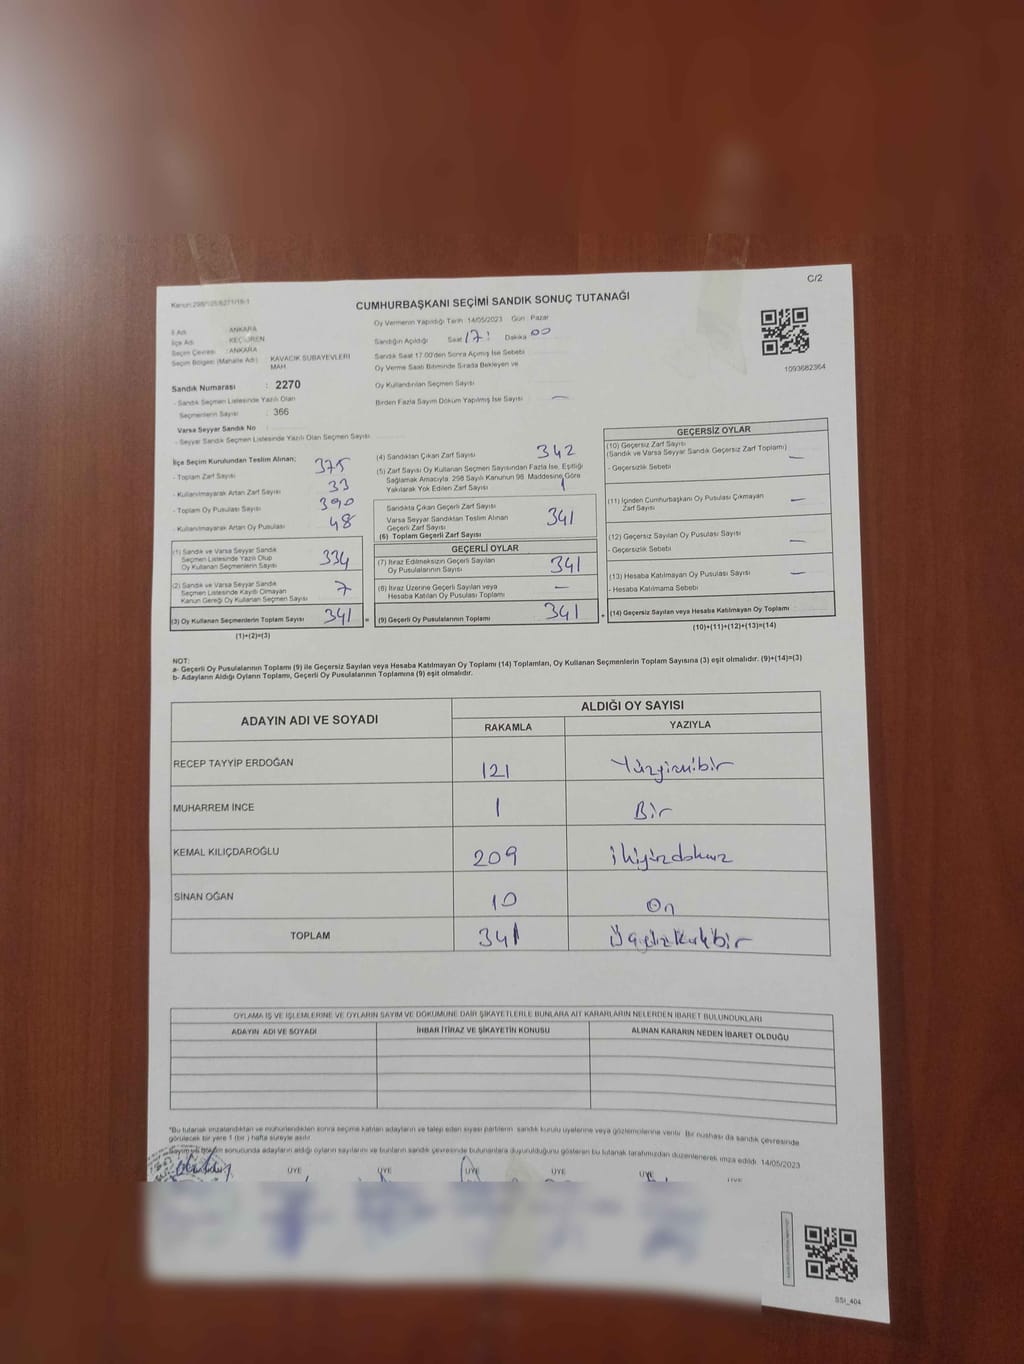 C/2
Kanun:298/105/6271/19-1
CUMHURBAŞKANI SEÇİMİ SANDIK SONUÇ TUTANAĞI
İl Adı : ANKARA
İlçe Adı : KEÇİÖREN
Seçim Çevresi : ANKARA
Seçim Bölgesi (Mahalle Adı) : KAVACIK SUBAYEVLERİ MAH
Sandık Numarası : 2270
- Sandık Seçmen Listesinde Yazılı Olan
Seçmenlerin Sayısı : 366
Varsa Seyyar Sandık No :
- Seyyar Sandık Seçmen Listesinde Yazılı Olan Seçmen Sayısı :
Oy Vermenin Yapıldığı Tarih :14/05/2023 Gün : Pazar
Sandığın Açıldığı Saat 17 : Dakika 00
Sandık Saat 17.00'den Sonra Açılmış İse Sebebi
Oy Verme Saati Bitiminde Sırada Bekleyen ve
Oy Kullandırılan Seçmen Sayısı
Birden Fazla Sayım Döküm Yapılmış İse Sayısı —
1093682364
İlçe Seçim Kurulundan Teslim Alınan;
- Toplam Zarf Sayısı 375
- Kullanılmayarak Artan Zarf Sayısı 33
- Toplam Oy Pusulası Sayısı 390
- Kullanılmayarak Artan Oy Pusulası 48
(1) Sandık ve Varsa Seyyar Sandık
Seçmen Listesinde Yazılı Olup
Oy Kullanan Seçmenlerin Sayısı 334
(2) Sandık ve Varsa Seyyar Sandık
Seçmen Listesinde Kayıtlı Olmayan
Kanun Gereği Oy Kullanan Seçmen Sayısı 7
(3) Oy Kullanan Seçmenlerin Toplam Sayısı 341 =
(1)+(2)=(3)
(4) Sandıktan Çıkan Zarf Sayısı 342
(5) Zarf Sayısı Oy Kullanan Seçmen Sayısından Fazla İse, Eşitliği
Sağlamak Amacıyla, 298 Sayılı Kanunun 98. Maddesine Göre
Yakılarak Yok Edilen Zarf Sayısı 1
Sandıkta Çıkan Geçerli Zarf Sayısı
Varsa Seyyar Sandıktan Teslim Alınan
Geçerli Zarf Sayısı
(6) Toplam Geçerli Zarf Sayısı 341
GEÇERLİ OYLAR
(7) İtiraz Edilmeksizin Geçerli Sayılan
Oy Pusulalarının Sayısı 341
(8) İtiraz Üzerine Geçerli Sayılan veya
Hesaba Katılan Oy Pusulası Toplamı —
(9) Geçerli Oy Pusulalarının Toplamı 341 +
GEÇERSİZ OYLAR
(10) Geçersiz Zarf Sayısı
(Sandık ve Varsa Seyyar Sandık Geçersiz Zarf Toplamı)
- Geçersizlik Sebebi —
(11) İçinden Cumhurbaşkanı Oy Pusulası Çıkmayan
Zarf Sayısı —
(12) Geçersiz Sayılan Oy Pusulası Sayısı
- Geçersizlik Sebebi —
(13) Hesaba Katılmayan Oy Pusulası Sayısı —
- Hesaba Katılmama Sebebi
(14) Geçersiz Sayılan veya Hesaba Katılmayan Oy Toplamı
(10)+(11)+(12)+(13)=(14)
NOT:
a- Geçerli Oy Pusulalarının Toplamı (9) ile Geçersiz Sayılan veya Hesaba Katılmayan Oy Toplamı (14) Toplamları, Oy Kullanan Seçmenlerin Toplam Sayısına (3) eşit olmalıdır. (9)+(14)=(3)
b- Adayların Aldığı Oyların Toplamı, Geçerli Oy Pusulalarının Toplamına (9) eşit olmalıdır.
ADAYIN ADI VE SOYADI ALDIĞI OY SAYISI
RAKAMLA YAZIYLA
RECEP TAYYİP ERDOĞAN 121 Yüzyirmibir
MUHARREM İNCE 1 Bir
KEMAL KILIÇDAROĞLU 209 ikiyüzdokuz
SİNAN OĞAN 10 On
TOPLAM 341 Üçyüzkırkbir
OYLAMA İŞ VE İŞLEMLERİNE VE OYLARIN SAYIM VE DÖKÜMÜNE DAİR ŞİKAYETLERLE BUNLARA AİT KARARLARIN NELERDEN İBARET BULUNDUKLARI
ADAYIN ADI VE SOYADI İHBAR İTİRAZ VE ŞİKAYETİN KONUSU ALINAN KARARIN NEDEN İBARET OLDUĞU
*Bu tutanak imzalandıktan ve mühürlendikten sonra seçime katılan adayların ve talep eden siyasi partilerin sandık kurulu üyelerine veya gözlemcilerine verilir. Bir nüshası da sandık çevresinde
görülecek bir yere 1 (bir ) hafta süreyle asılır.
Sayım ve döküm sonucunda adayların aldığı oyların sayılarını ve bunların sandık çevresinde bulunanlara duyurulduğunu gösteren bu tutanak tarafımızdan düzenlenerek imza edildi. 14/05/2023
ÜYE ÜYE ÜYE ÜYE ÜYE ÜYE
SSI_404